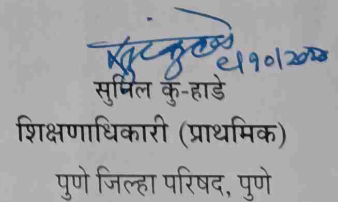 ८।१०।२०२०
सुनिल कु-हाडे
शिक्षणाधिकारी (प्राथमिक)
पुणे जिल्हा परिषद, पुणे